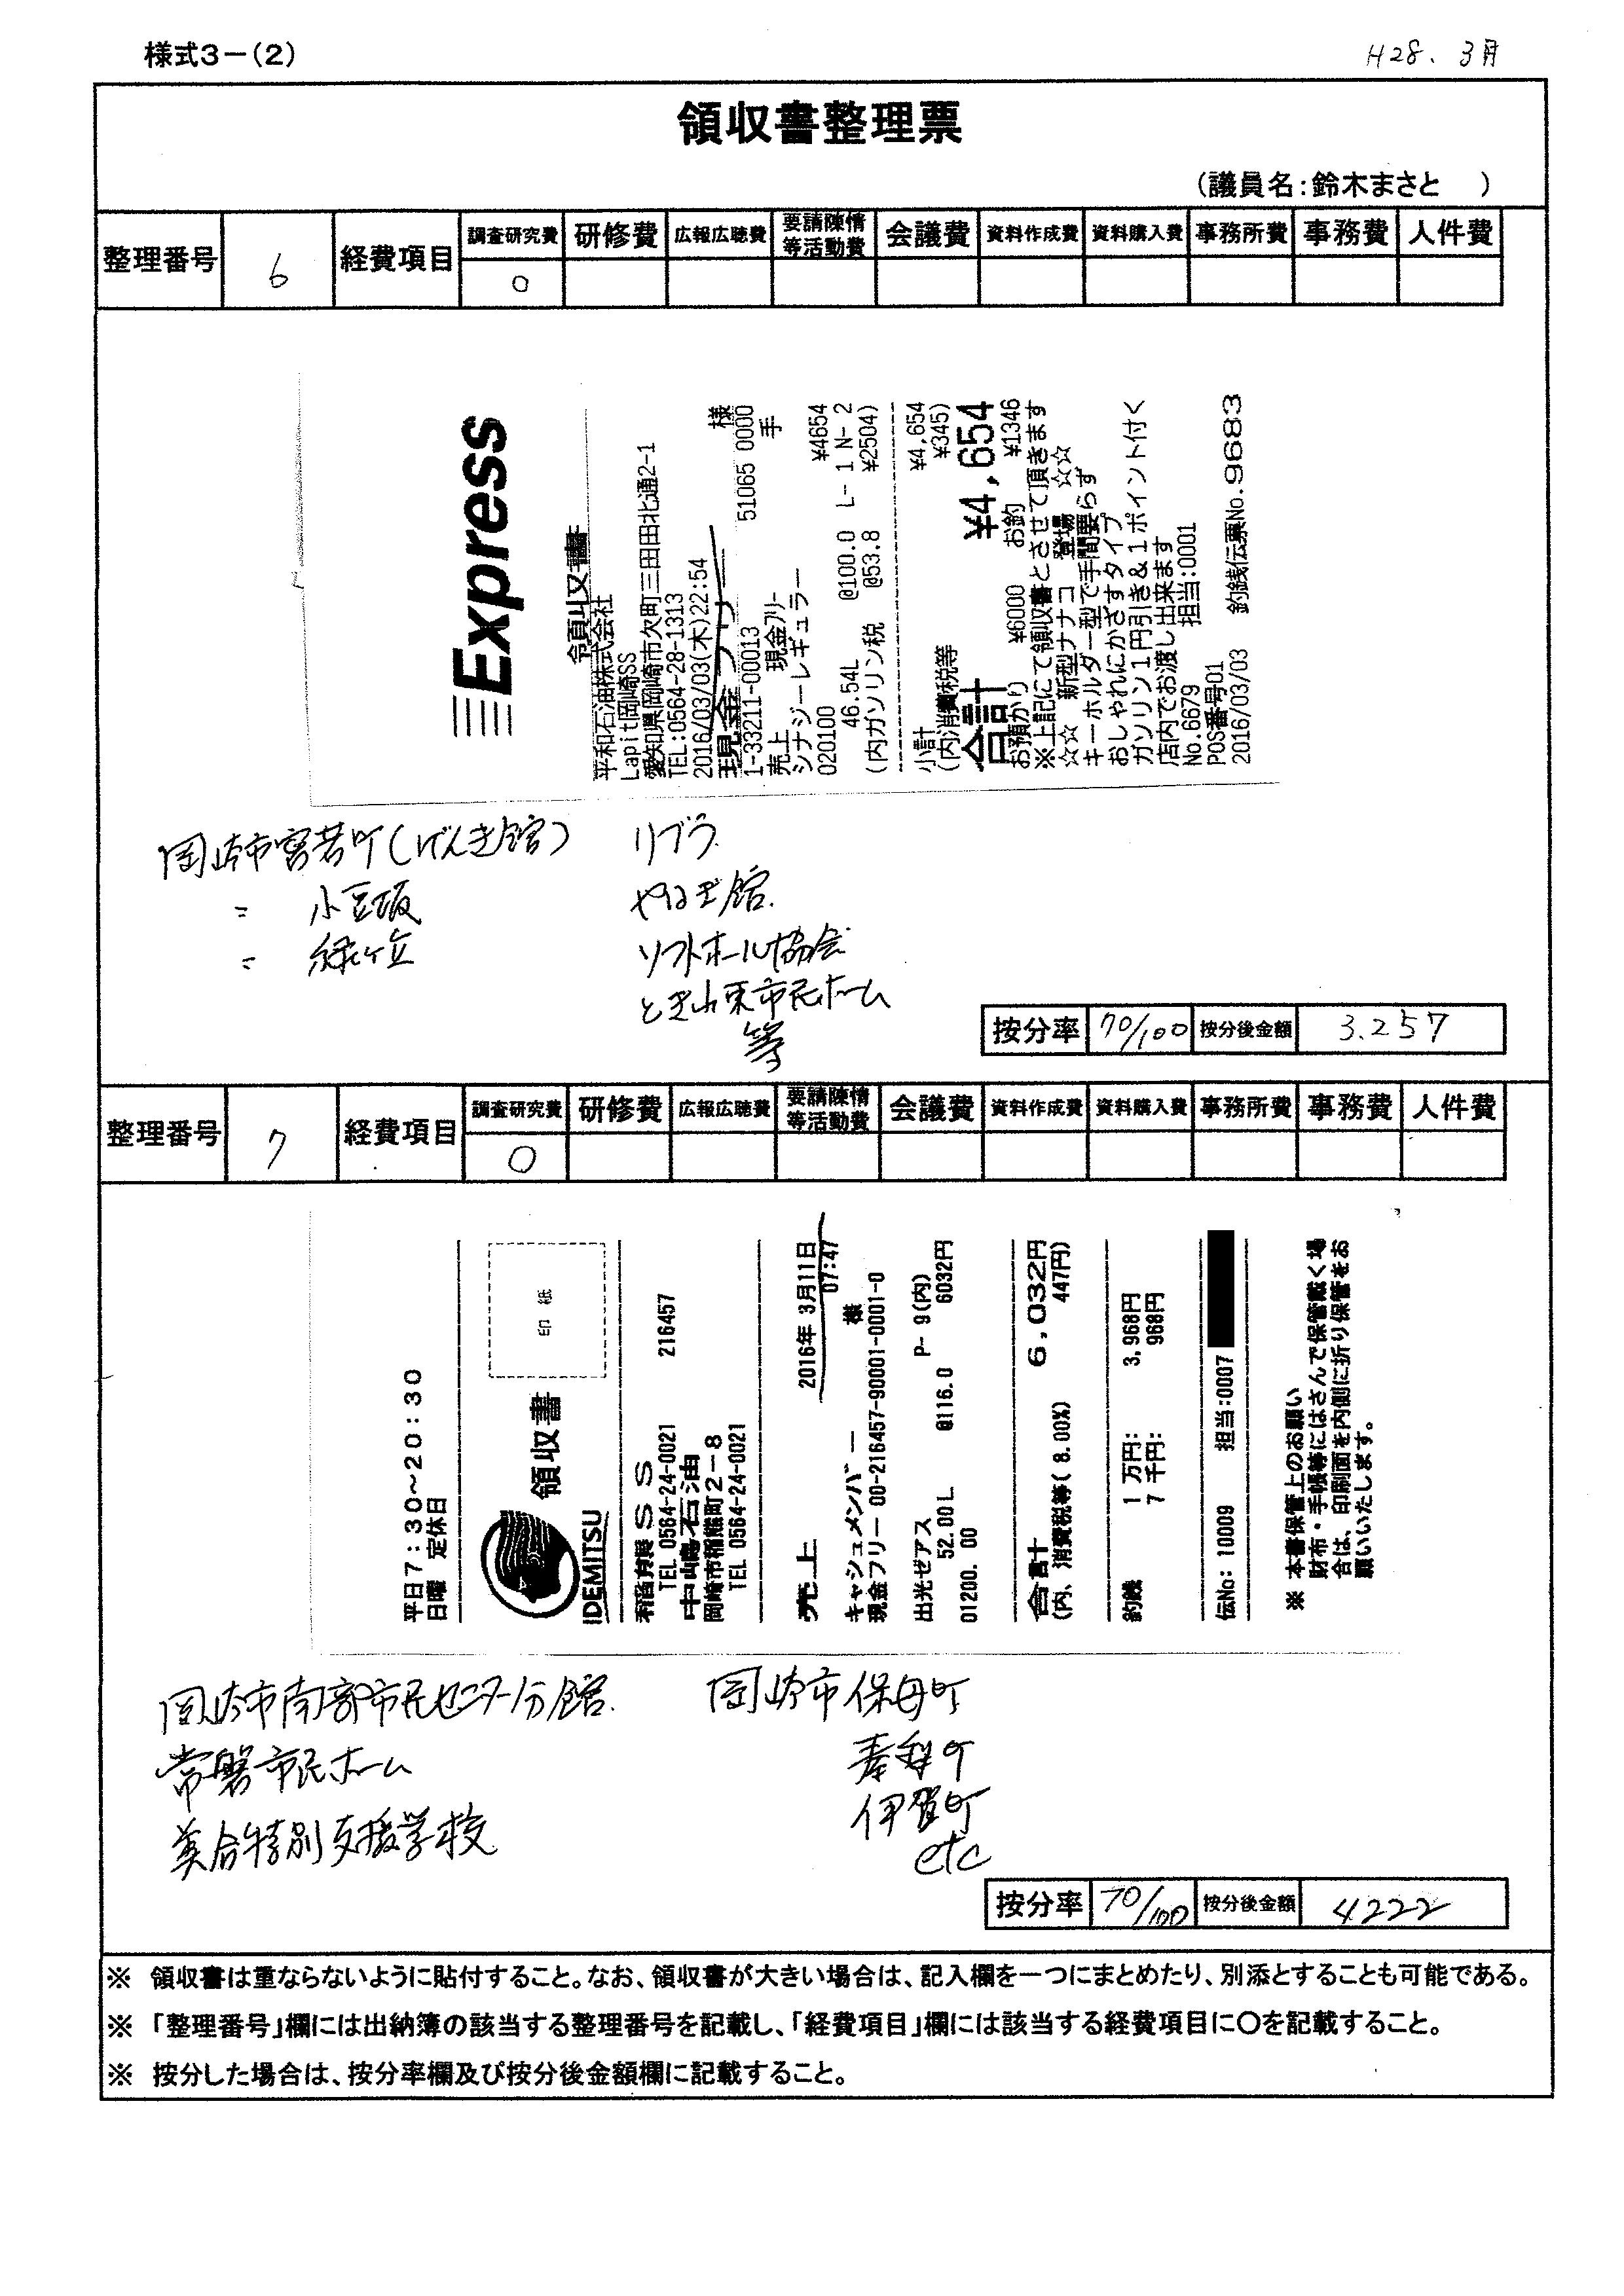 様式3－(2)
H28. 3月
領収書整理票
(議員名:鈴木まさと )
整理番号 6 経費項目 調査研究費 研修費 広報広聴費 要請陳情等活動費 会議費 資料作成費 資料購入費 事務所費 事務費 人件費
○
Express
領収書
平和石油株式会社
Lapit岡崎SS
愛知県岡崎市欠町三田田北通2-1
TEL:0564-28-1313
2016/03/03(木)22:54
現金フリー 様
1-33211-00013 51065 0000
売上 現金フリー 手
シナジーレギュラー ¥4654
020100
46.54L @100.0 L- 1 N- 2
(内ガソリン税 @53.8 ¥2504)
小計 ¥4,654
(内消費税等 ¥345)
合計 ¥4,654
お預かり ¥6000 お釣 ¥1346
※上記にて領収書とさせて頂きます
☆☆ 新型ナナコ 登場 ☆☆
キーホルダー型で手間要らず
おしゃれにかざすタイプ
ガソリン1円引き&1ポイント付く
店内でお渡し出来ます
No.6679 担当:0001
POS番号01
2016/03/03 釣銭伝票No.9683
岡崎市宮若町(げんき館) リブラ
〃 小豆坂 やはぎ館
〃 緑ヶ丘 ソフトボール協会
東市民ホーム
等
按分率 70/100 按分後金額 3.257
整理番号 7 経費項目 調査研究費 研修費 広報広聴費 要請陳情等活動費 会議費 資料作成費 資料購入費 事務所費 事務費 人件費
○
平日7:30~20:30
日曜 定休日
領収書
印紙
IDEMITSU
稲熊SS 216457
TEL 0564-24-0021
中嶋石油
岡崎市稲熊町2-8
TEL 0564-24-0021
売上 2016年 3月11日
07:47
キャシュメンバー 様
現金フリー 00-216457-90001-0001-0
出光ゼアス P- 9(内)
52.00L @116.0 6032円
01200. 00
合計 6,032円
(内、消費税等( 8.00%) 447円)
釣銭 1万円: 3,968円
7千円: 968円
伝No: 10009 担当:0007
※ 本書保管上のお願い
財布・手帳等にはさんで保管戴く場
合は、印刷面を内側に折り保管をお
願いいたします。
岡崎市南部市民センター分館 岡崎市保母町
常磐市民ホーム
美合特別支援学校 伊賀町
etc
按分率 70/100 按分後金額 4222
※ 領収書は重ならないように貼付すること。なお、領収書が大きい場合は、記入欄を一つにまとめたり、別添とすることも可能である。
※ 「整理番号」欄には出納簿の該当する整理番号を記載し、「経費項目」欄には該当する経費項目に○を記載すること。
※ 按分した場合は、按分率欄及び按分後金額欄に記載すること。